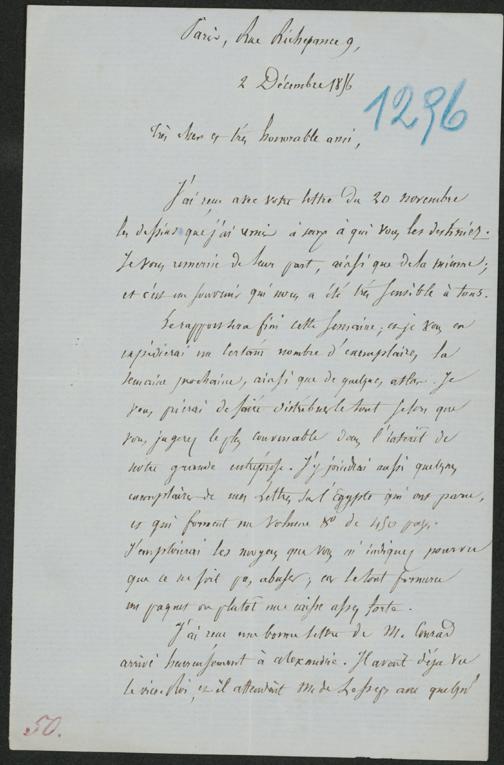 Paris, Rue Richepance 9,
2 Décembre 1856
1296
Très cher et très honorable ami,
J'ai reçu avec votre lettre du 20 novembre
les dessins que j'ai remis à ceux à qui vous les destiniez.
Je vous remercie de leur part, ainsi que de la mienne;
et c'est un souvenir qui nous a été très sensible à tous.
Le rapport sera fini cette semaine; et je vous en
expédierai un certain nombre d'exemplaires la
semaine prochaine, ainsi que de quelques atlas. Je
vous prierai de faire distribuer le tout selon que
vous jugerez le plus convenable dans l'intérêt de
notre grande entreprise. J'y joindrai aussi quelques
exemplaires de mes Lettres sur l'Egypte qui ont paru,
et qui forment un volume 8º de 450 pag.
J'emploierai les moyens que vous m'indiquez pourvu
que ce ne soit pas abuser; car le tout formera
un paquet ou plutôt une caisse assez forte.
J'ai reçu une bonne lettre de M. Conrad
arrivé heureusement à Alexandrie. Il avait déjà vu
le vice-Roi, et il attendait M. de Lesseps avec quelqu'
50.